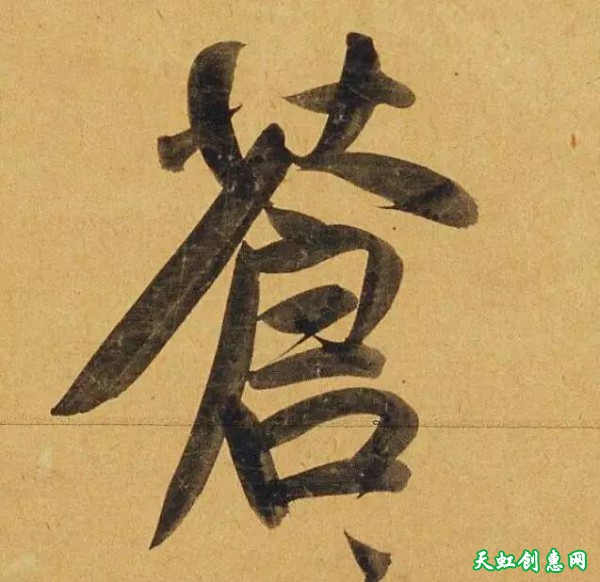 蒼
天虹创惠网